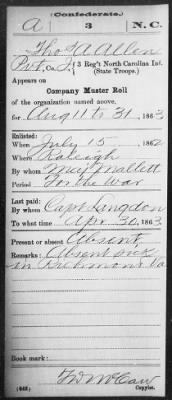 (Confederate.)
A 3 N.C.
Tho? A Allen
Pvt, Co. I, 3 Reg't North Carolina Inf.
(State Troops.)
Appears on
Company Muster Roll
of the organization named above,
for Aug 11 to 31, 1863
Enlisted:
When July 15, 1862
Where Raleigh
By whom Maj Mallett
Period For the War
Last paid:
By whom Capt. Langdon
To what time Apr. 30, 1863
Present or absent Absent
Remarks: Absent sick
in Richmond Va
Book mark:
(642)
Copyist.